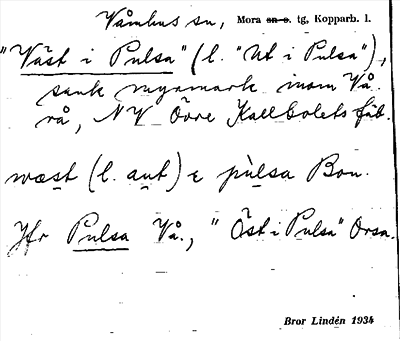 Våmhus sn, Mora sn o. tg, Kopparb. l.
"Väst i Pulsa" (l. "Ut i Pulsa"),
sank myrmark inom Vå.
rå, NV Övre Kallbolets fäb.
wæst (l. aut) ɛ pùlsa Bon.
Jfr Pulsa Vå., "Öst i Pulsa" Orsa.
Bror Lindén 1934